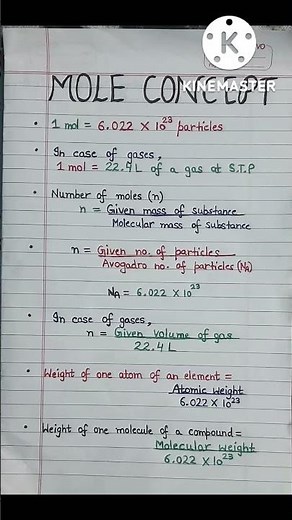 KINEMASTER
MOLE CONCEPT
• 1 mol = 6.022 × 10²³ particles
• In case of gases,
1 mol = 22.4 L of a gas at S.T.P
• Number of moles (n)
n = Given mass of substance
Molecular mass of substance
• n = Given no. of particles
Avogadro no. of particles (Nₐ)
Nₐ = 6.022 × 10²³
• In case of gases,
n = Given volume of gas
22.4 L
• Weight of one atom of an element =
Atomic weight
6.022 × 10²³
• Weight of one molecule of a compound =
Molecular weight
6.022 × 10²³